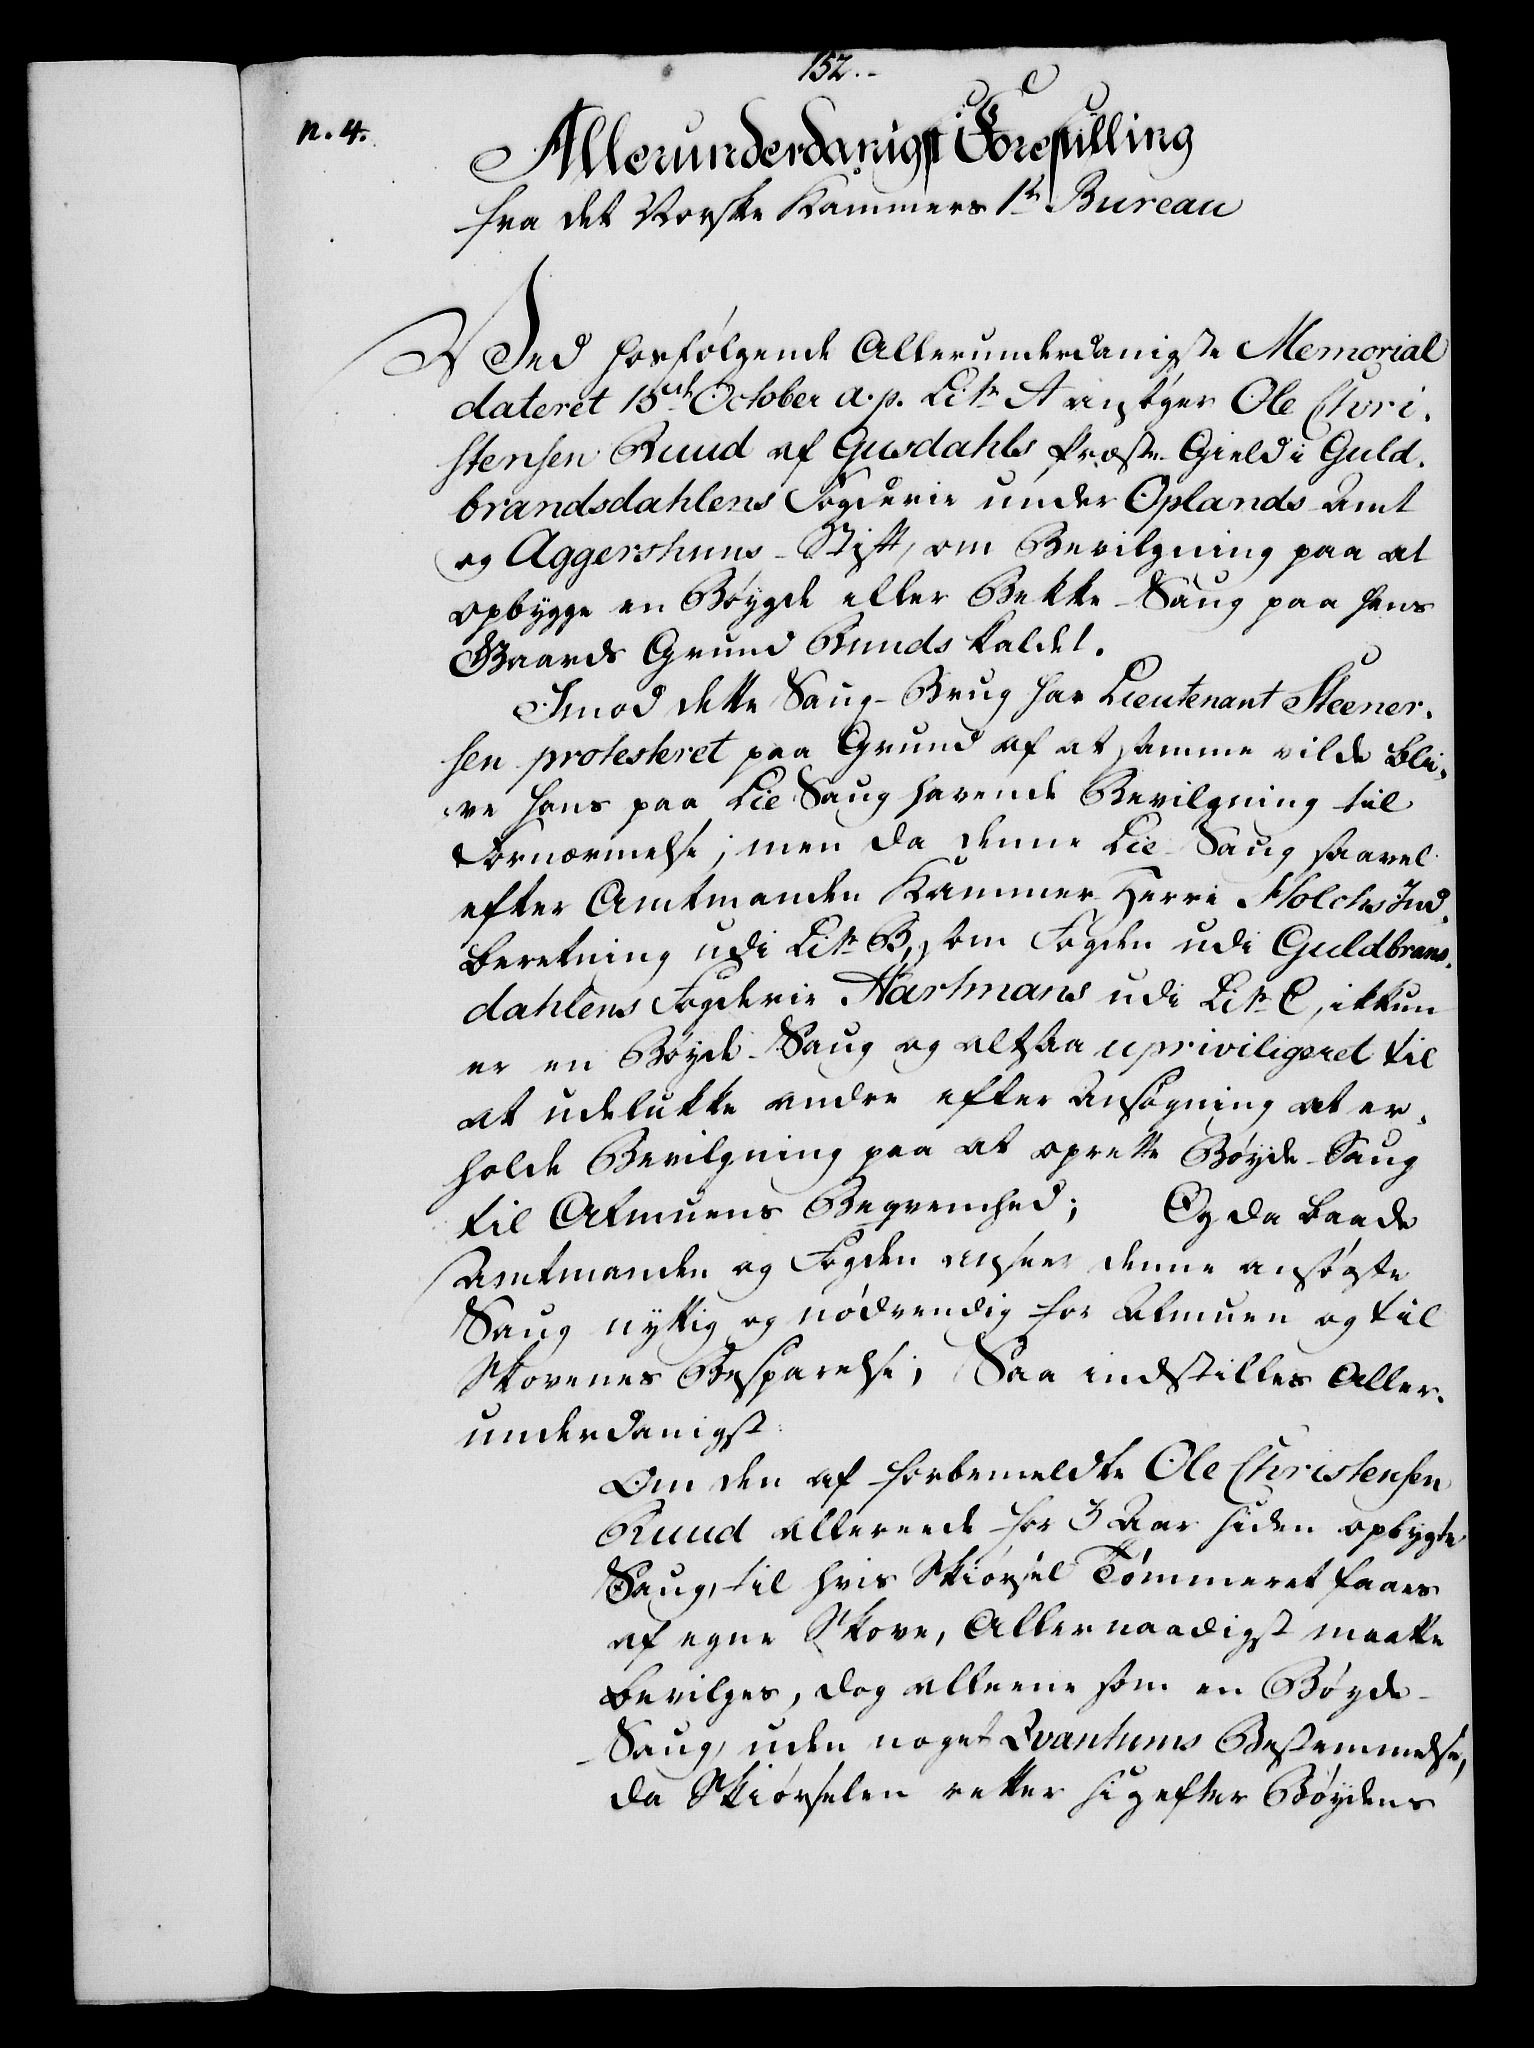 152.-
n. 4.
Allerunderdanigst Forestilling
fra det Norske Kammers 1te Bureau
Ved hosfølgende Allerunderdanigste Memorial
dateret 15de October a. p. Litr. A ansøger Ole Chri-
stensen Ruud af Gusdahls Præste-Gield i Guld-
brandsdahlens Fogderie under Oplands Amt
og Aggershuus-Stift, om Bevilgning paa at
opbygge en Bøygde eller Bekke-Saug paa hans
Gaards Grund Ruuds kaldet.
Imod dette Saug-Brug har Lieutenant Steener-
sen protesteret paa Grund af at samme vilde bli-
ve hans paa Lie Saug havende Bevilgning til
Fornærmelse; men da denne Lie-Saug saavel
efter Amtmanden Kammer-Herre Holchs Ind-
beretning udi Litr. B, som Fogden udi Guldbrans-
dahlens Fogderie Hartmans udi Litr. C, ikkun
er en Bøyde-Saug og altsaa upriviligeret til
at udelukke andre efter Ansøgning at er-
holde Bevilgning paa at oprette Bøyde-Saug
til Almuens Beqvemhed; Og da baade
Amtmanden og Fogden ansee denne ansøgte
Saug nyttig og nødvendig for Almuen og til
Skovenes Besparelse; Saa indstilles Aller-
underdanigst:
Om den af forbemeldte Ole Christensen
Ruud allereede for 3 Aar siden opbygte
Saug, til hvis Skiørsel Tømmeret faaes
af egne Skove, Allernaadigst maatte
bevilges, dog alleene som en Bøyde-
Saug, uden noget Qvantums Bestemmelse,
da Skiørselen retter sig efter Bøydens